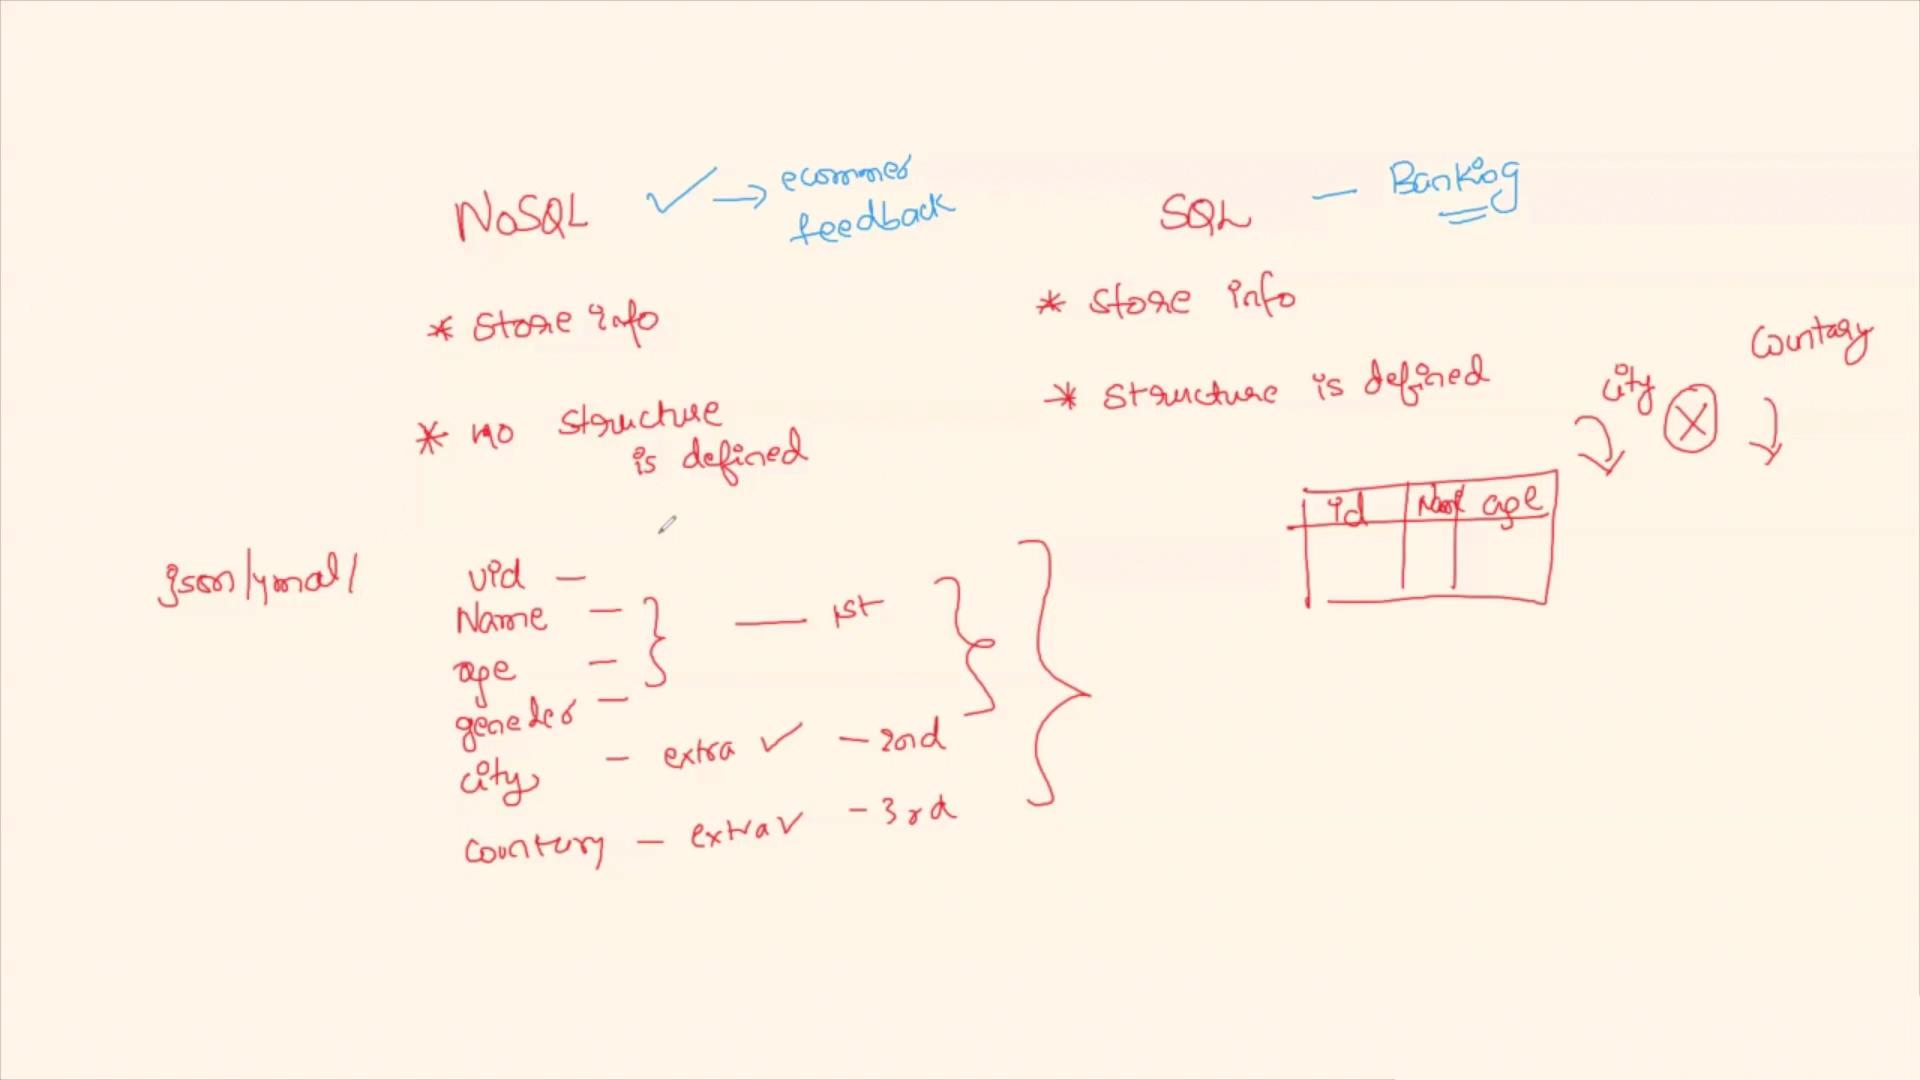 NoSQL ✓ → ecommer
feedback
* Store info
* no structure
is defined
json/ymal/
uid —
Name —
age —
geneder —
city — extra ✓ — 2nd
countury — extra ✓ — 3rd
— 1st
SQL — Banking
* Store info
* Structure is defined
city
Countary
id
age